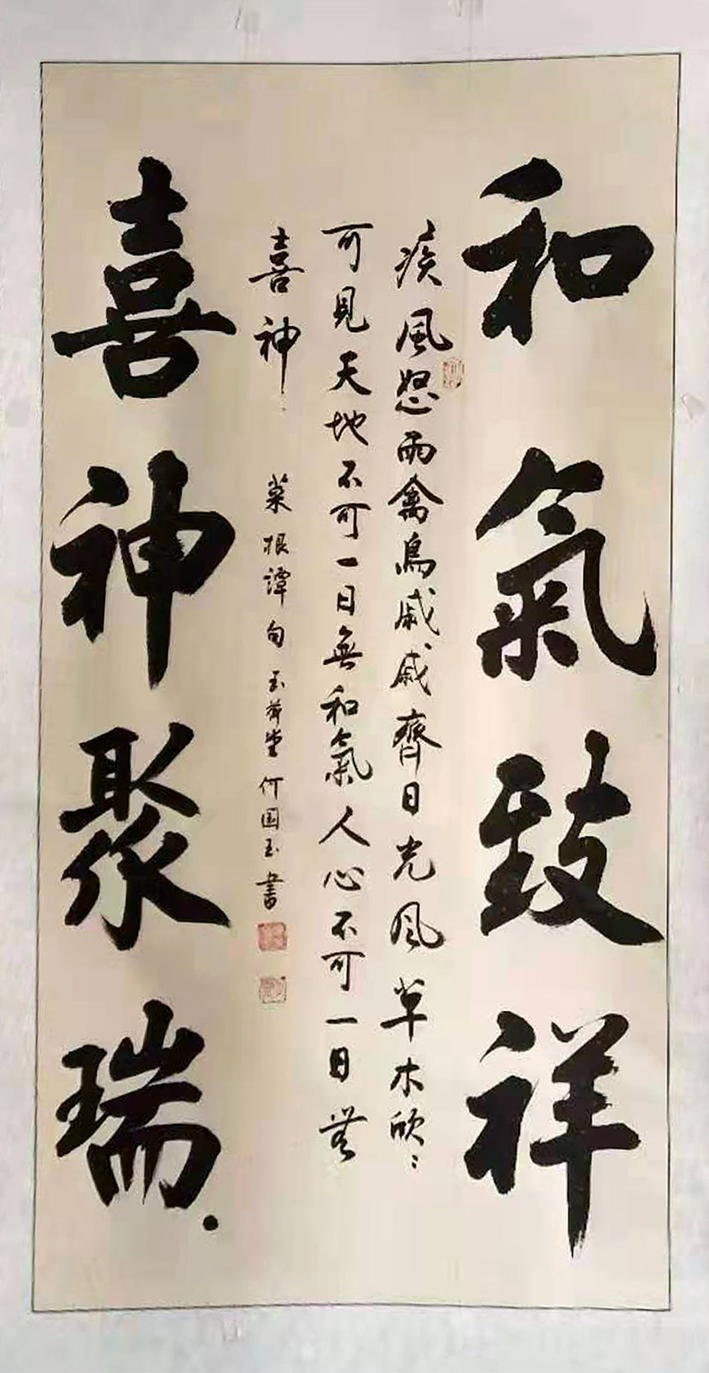 和氣致祥
疾風怒雨禽鳥戚戚齊日光風草木欣〻
可見天地不可一日無和氣人心不可一日無
喜神 菜根譚句 何国玉書
喜神聚瑞